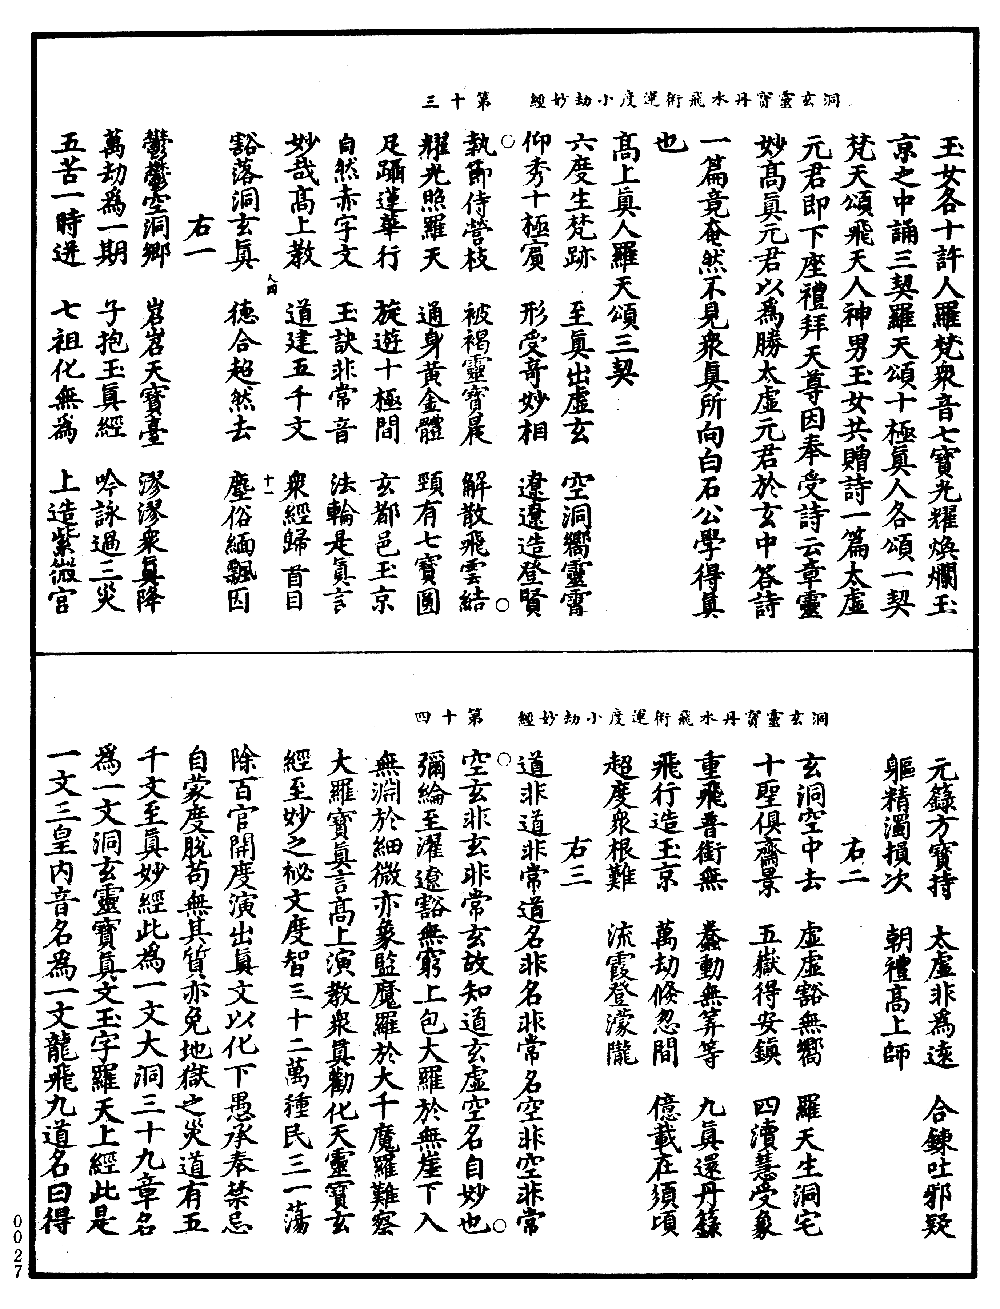 洞玄靈寶丹水飛術運度小劫妙經　第十三
玉女各十許人羅梵衆音七寶光耀煥爛玉
京之中誦三契羅天頌十極眞人各頌一契
梵天頌飛天人神男玉女共贈詩一篇太虛
元君即下座禮拜天尊因奉受詩云章靈
妙高眞元君以爲勝太虛元君於玄中答詩
一篇竟奄然不見衆眞所向白石公學得眞
也
高上眞人羅天頌三契
六度生梵跡　至眞出虛玄　空洞嚮靈霄
仰秀十極賔　形受奇妙相　遼遼造登賢
執節侍營枝　被褐靈寶晨　解散飛雲結
耀光照羅天　通身黃金體　頸有七寶圓
足躡蓮華行　旋遊十極間　玄都邑玉京
自然赤字文　玉訣非常音　法輪是眞言
妙哉高上教　道建五千文　衆經歸首目
豁落洞玄眞　德合超然去　塵俗緬飄因
右一
鬱鬱空洞鄉　岧岧天寶臺　漻漻衆眞降
萬劫爲一期　子抱玉眞經　吟詠過三災
五苦一時迸　七祖化無爲　上造紫微宮
洞玄靈寶丹水飛術運度小劫妙經　第十四
元籙方寶持　太虛非爲遠　合鍊吐邪疑
軀精濁損次　朝禮高上師
右二
玄洞空中去　虛虛豁無嚮　羅天生洞宅
十聖俱齋景　五嶽得安鎮　四瀆慧受象
重飛普銜無　蠢動無筭等　九眞還丹籙
飛行造玉京　萬劫倏忽間　億載在須頃
超度衆根難　流霞登濛隴
右三
道非道非常道名非名非常名空非空非常
空玄非玄非常玄故知道玄虛空名自妙也
彌綸至濯遼豁無窮上包大羅於無崖下入
無淵於細微亦象監魔羅於大千魔羅難察
大羅寶眞言高上演教衆眞勸化天靈寶玄
經至妙之祕文度智三十二萬種民三一蕩
除百官開度演出眞文以化下愚承奉禁忌
自蒙度脫苟無其質亦免地獄之災道有五
千文至眞妙經此爲一文大洞三十九章名
爲一文洞玄靈寶眞文玉字羅天上經此是
一文三皇內音名爲一文龍飛九道名曰得
0027